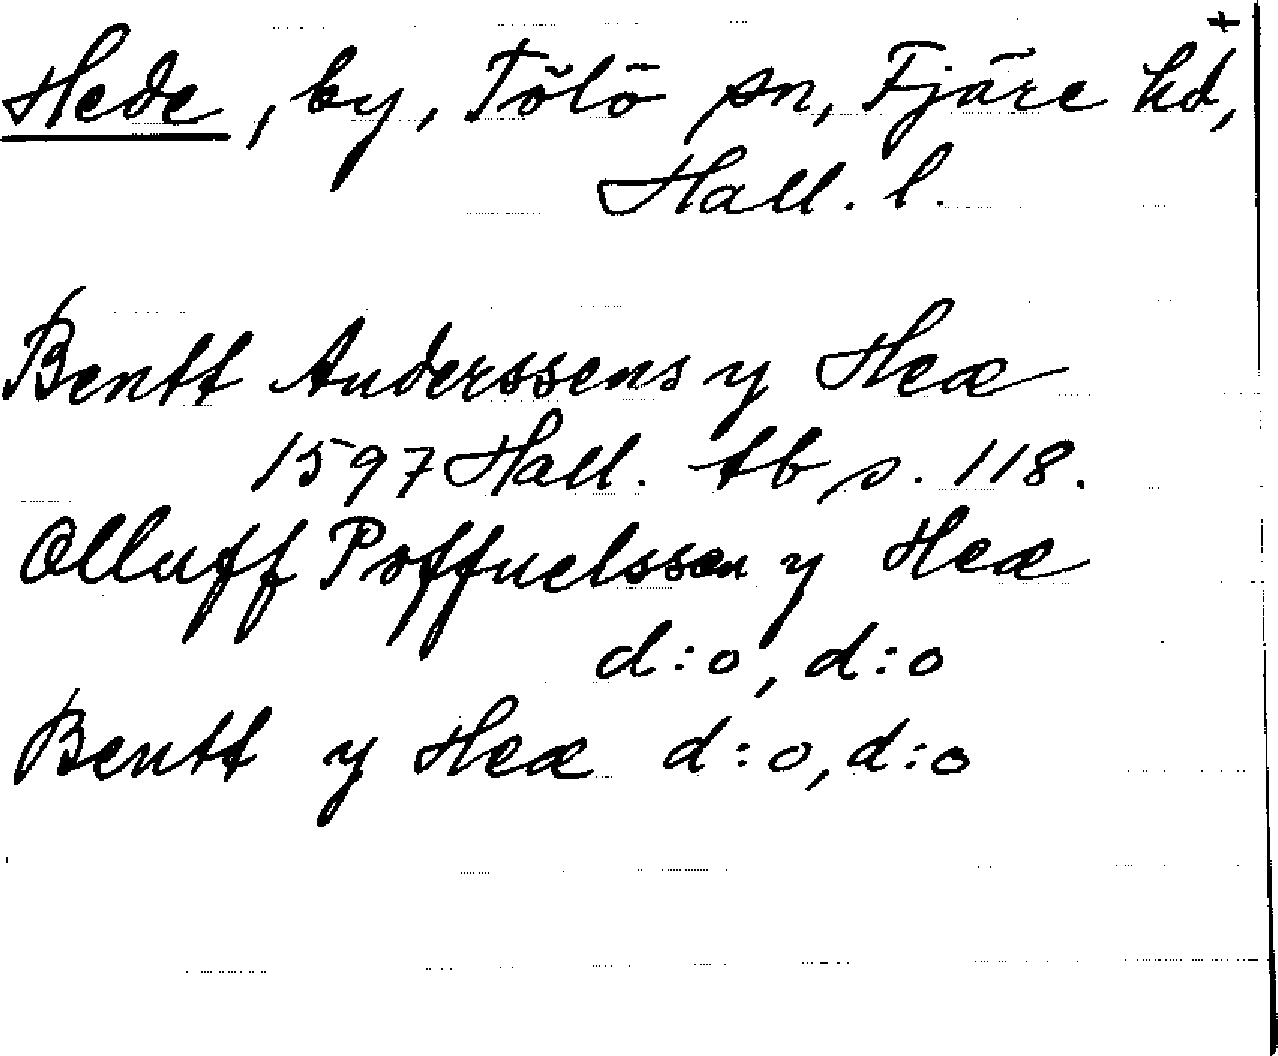 +
Hede, by, Tölö sn, Fjäre hd,
Hall. l.
Bentt Anderssens y Heæ
1597 Hall. tb s. 118.
Olluff Poffuelssøn y Heæ
d:o, d:o
Bentt y Heæ d:o, d:o